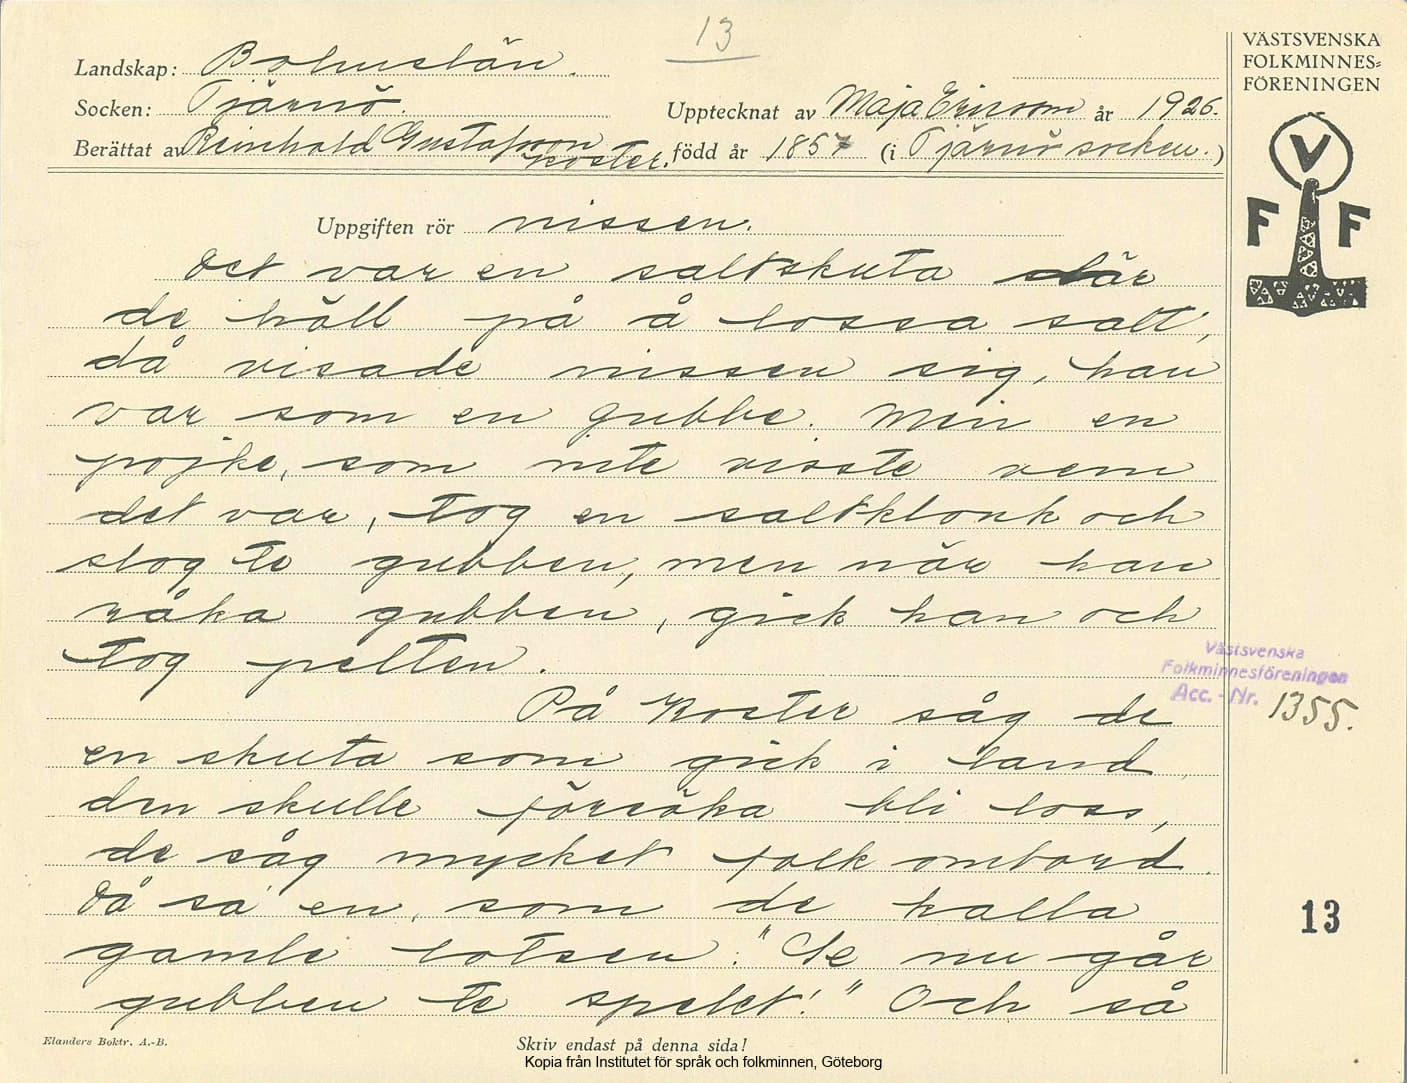 13
Landskap: Bohuslän.
Socken: Tjärnö.
Upptecknat av Maja Ericson år 1926.
Berättat av Reinhold Gustafsson Koster. född år 1857 (i Tjärnö socken.)
VÄSTSVENSKA
FOLKMINNES=
FÖRENINGEN
V
F F
Uppgiften rör nissen.
Det var en saltskuta där
de höll på å lossa salt,
då visade nissen sig, han
var som en gubbe. Men en
pojke, som inte visste vem
det var, tog en saltklonk och
slog te gubben, men när han
råka gubben, gick han och
tog pelten.
Västsvenska
Folkminnesföreningen
Acc. - Nr. 1355.
På Koster såg de
en skuta som gick i land,
den skulle försöka bli loss,
de såg mycket folk ombord.
Då sa en, som de kalla
gamle lotsen: "Se nu går
gubben te spelet!" Och så
13
Elanders Boktr. A.-B.
Skriv endast på denna sida!
Kopia från Institutet för språk och folkminnen, Göteborg